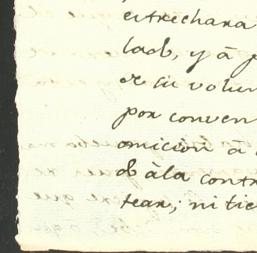 estrechara
lado, y â p
de su volun
por conven
omicion â
do âla contr
tear; ni tie